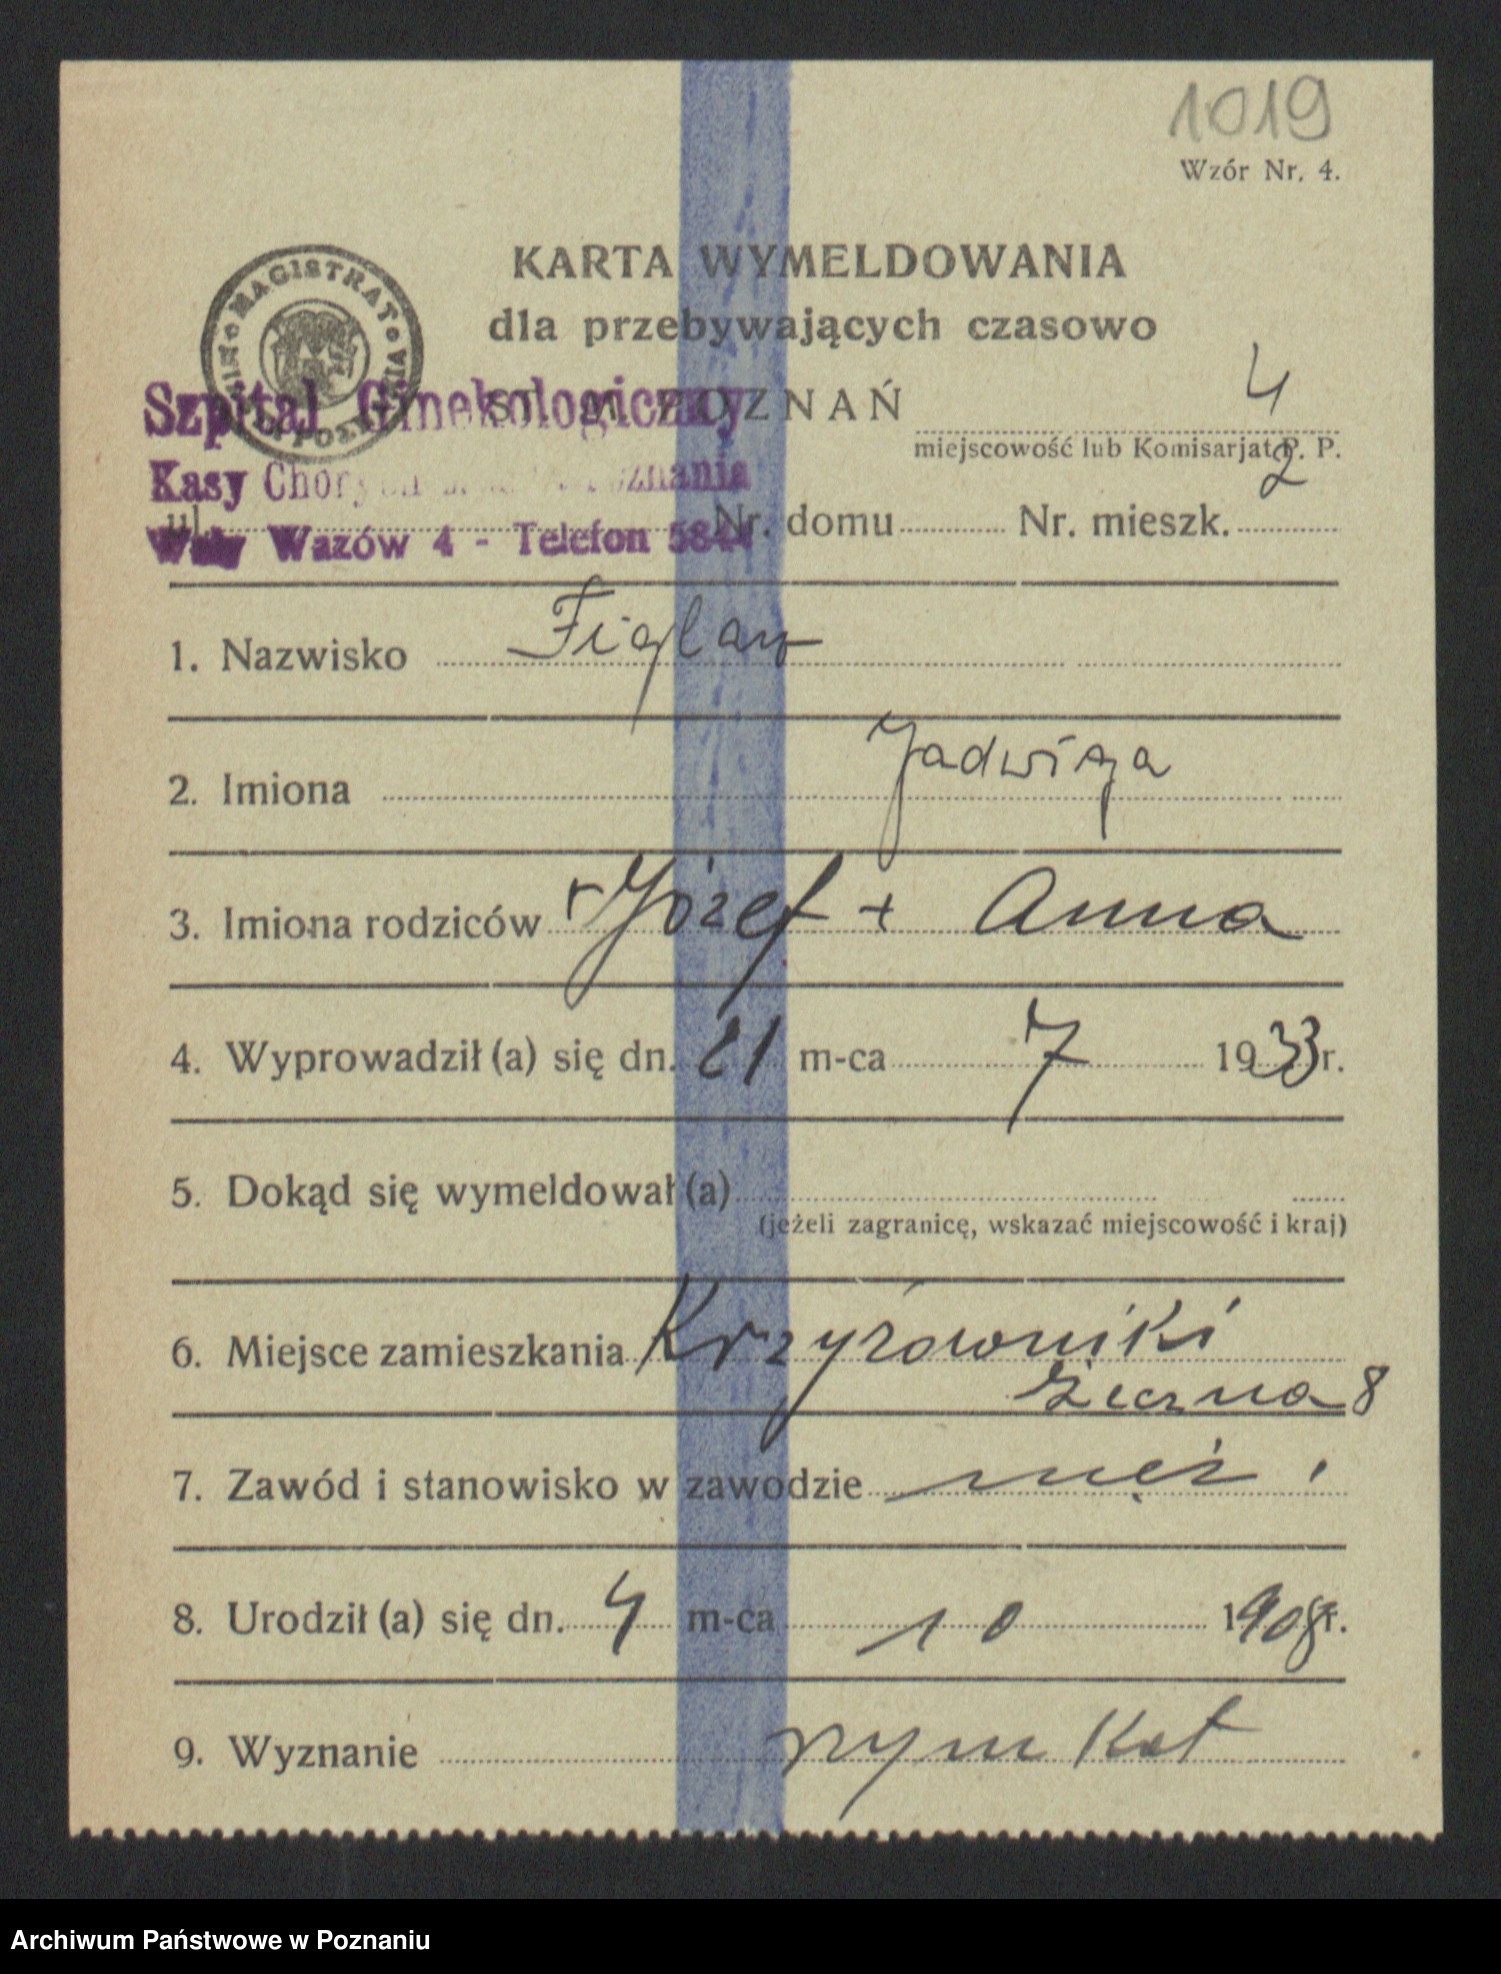 1019
Wzór Nr. 4.
KARTA WYMELDOWANIA
dla przebywających czasowo
MAGISTRAT
ST. M. POZNAŃ 4
miejscowość lub Komisarjat P. P.
Szpital Ginekologiczny
Kasy Chorych Poznania
Wały Wazów 4 - Telefon 5844
ul. Nr. domu Nr. mieszk. 2
1. Nazwisko Figlar
2. Imiona Jadwiga
3. Imiona rodziców Józef + Anna
4. Wyprowadził (a) się dn. 21 m-ca 7 1933 r.
5. Dokąd się wymeldował (a)
(jeżeli zagranicę, wskazać miejscowość i kraj)
6. Miejsce zamieszkania Krzyżowniki
8
7. Zawód i stanowisko w zawodzie męż.
8. Urodził (a) się dn. 4 m-ca 10 1908 r.
9. Wyznanie rzym Kat
Archiwum Państwowe w Poznaniu